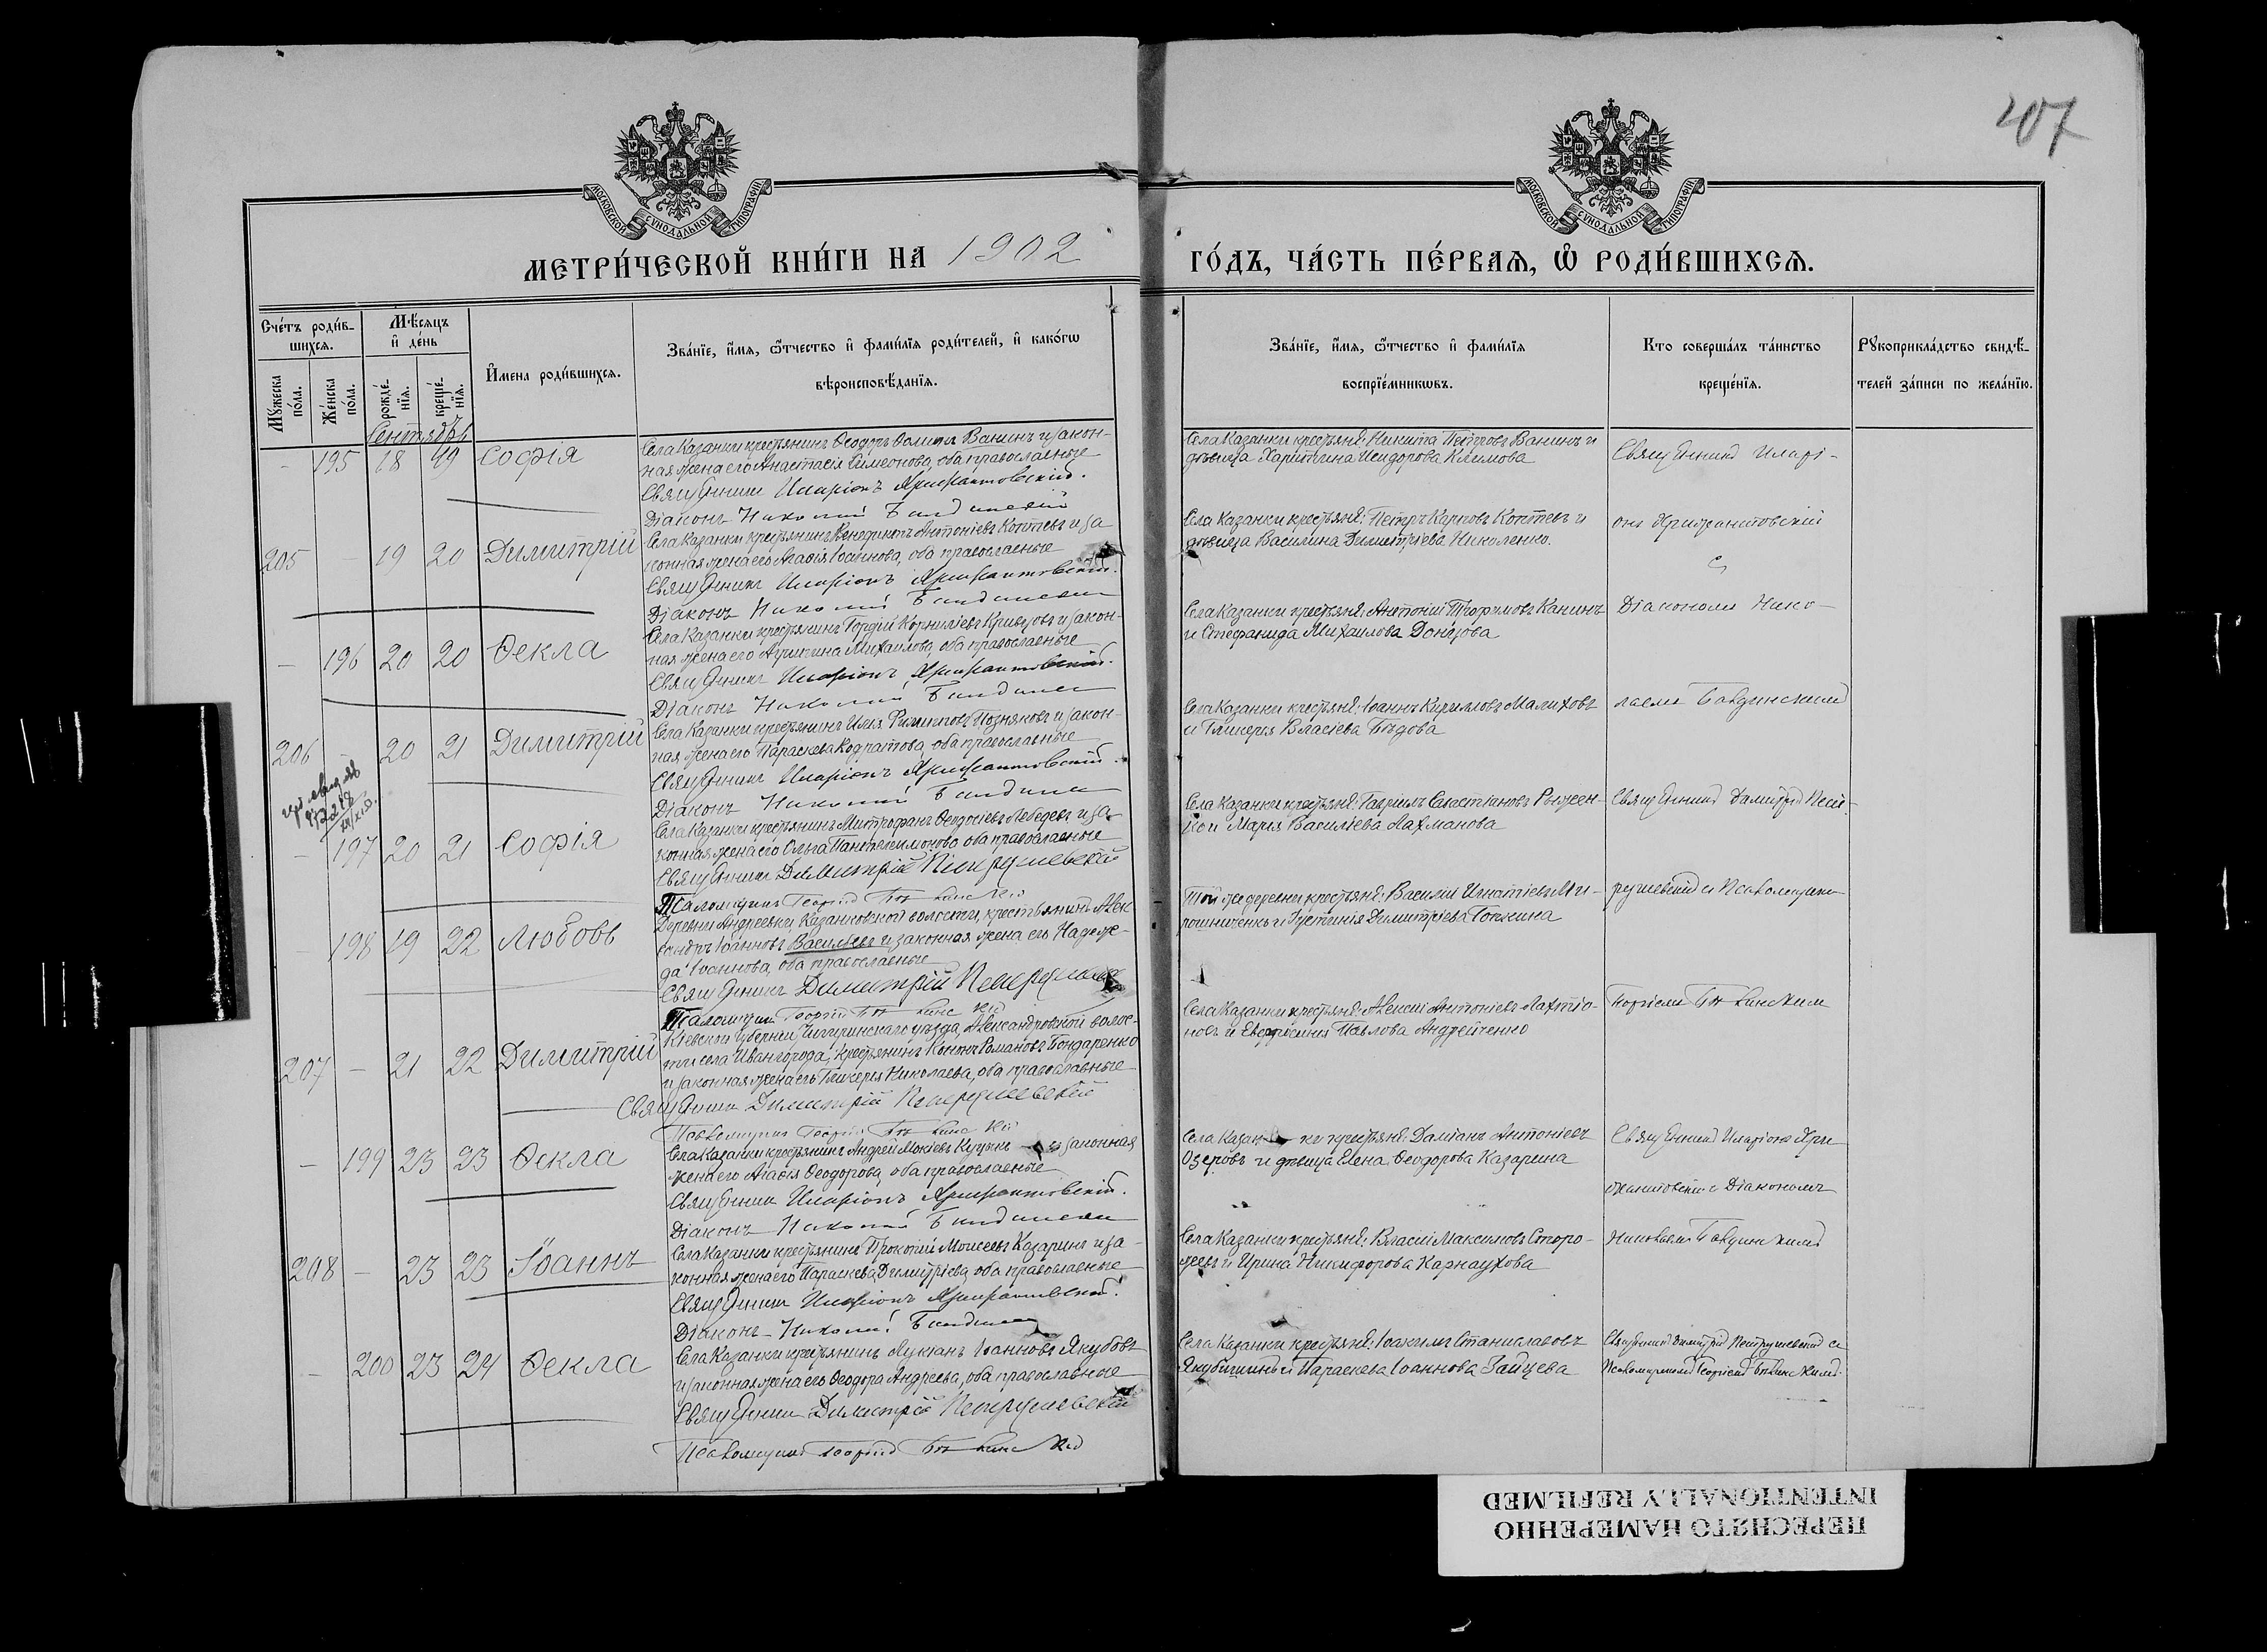 207
МОСКОВСКОЙ СѴНОДАЛЬНОЙ ТИПОГРАФІИ
МОСКОВСКОЙ СѴНОДАЛЬНОЙ ТИПОГРАФІИ
МЕТРИ́ЧЕСКОЙ КНИ́ГИ НА 1902
ГО́ДЪ, ЧА́СТЬ ПЕ́РВАѦ, Ѽ РОДИ́ВШИХСѦ.
Сче́тъ роди́в-
шихсѧ.
Мѣ́сѧцъ
и҆ де́нь
И҆мена роди́вшихсѧ.
Зва́нїе, и҆́мѧ, ѻ҆́тчество и҆ фами́лїѧ роди́телей, и҆ како́гѡ
вѣроисповѣ́данїѧ.
Мꙋ́жеска по́ла.
Же́нска по́ла.
рожде́-нїѧ.
креще́-нїѧ.
Зва́нїе, и҆́мѧ, ѻ҆́тчество и҆ фами́лїѧ
воспрїе́мникѡвъ.
Кто соверша́лъ та́инство
креще́нїѧ.
Рꙋкоприкла́дство свидѣ́-
телей за́писи по жела́нїю.
Сентябрь
- 195 18 19 Софія
Села Казанки крестьянинъ Ѳеодоръ Ѳоминъ Ванинъ и закон-
ная жена его Анастасія Симеонова, оба православные
Священникъ Иларіонъ Хрисанфовскій.
Діаконъ Николай
Села Казанки крестьяне: Никита Петровъ Ванинъ и
дѣвица Харитина Исидорова Климова
Священникъ Иларі-
205 - 19 20 Димитрій
Села Казанки крестьянинъ Венедиктъ Антоніевъ Коптевъ и за
конная жена его Агафія Іоаннова, оба православные
Священникъ Иларіонъ Хрисанфовскій.
Діаконъ Николай
Села Казанки крестьяне: Петръ Карповъ Коптевъ и
дѣвица Василина Димитріева Николенко.
онъ Хрисанфовскій
съ
- 196 20 20 Ѳекла
Села Казанки крестьянинъ Гордій Корниліевъ Кривцовъ и закон-
ная жена его Михайлова, оба православные
Священникъ Иларіонъ Хрисанфовскій.
Діаконъ Николай
Села Казанки крестьяне: Антоній Трофимовъ Канинъ
и Стефанида Михайлова Донцова
Діакономъ Нико-
206 - 20 21 Димитрій
Села Казанки крестьянинъ Илія Филипповъ Позняковъ и закон-
ная жена его Параскева Кодратова, оба православные
Священникъ Иларіонъ Хрисанфовскій.
Діаконъ Николай
Села Казанки крестьяне: Іоаннъ Кирилловъ Малиховъ
и Гликерія Власіева Бѣдова
лаемъ
- 197 20 21 Софія
Села Казанки крестьянинъ Митрофанъ Ѳеодосіевъ Лебедевъ и за-
конная жена его Ольга Пантелеимонова оба православные
Священникъ Димитрій Петрушевскій
Псаломщикъ Георгій
Села Казанки крестьяне: Гавріилъ Севастіановъ Рыжен-
ко и Марія Василіева Лахманова
Священникъ Димитрій Пет-
- 198 19 22 Любовь
Деревни Андреевки, Казанковской волости, крестьянинъ Алек
сандръ Іоанновъ Васильевъ и законная жена его Надеж-
да Іоаннова, оба православные
Священникъ Димитрій Петрушевскій
Псаломщикъ Георгій
Той же деревни крестьяне: Василій Игнатіевъ Ми-
рошниченко и Іустинія Димитріева Гонкина
рушевскій съ Псаломщико-
207 - 21 22 Димитрій
Кіевской губерніи, Чигиринскаго уѣзда, Александровской волос-
ти села Ивангорода, крестьянинъ Романовъ Бондаренко
и законная жена его Гликерія Николаева, оба православные
Священникъ Димитрій Петрушевскій
Псаломщикъ Георгій
Села Казанки крестьяне: Алексій Антоніевъ Лахтіо-
новъ и Евфросинія Павлова Андрейченко
Георгіемъ
- 199 23 23 Ѳекла
Села Казанки крестьянинъ Андрей Мокіевъ и законная
жена его Агафія Ѳеодорова, оба православные
Священникъ Иларіонъ Хрисанфовскій.
Діаконъ Николай
Села Казан-ки крестьяне: Даміанъ Антоніевъ
Озеровъ и дѣвица Елена Ѳеодорова Казарина
Священникъ Иларіонъ Хри
санфовскій съ Діакономъ
208 - 23 23 Іоаннъ
Села Казанки крестьянинъ Прокопій Моисеевъ Казаринъ и за-
конная жена его Параскева Димитріева, оба православные
Священникъ Иларіонъ Хрисанфовскій.
Діаконъ Николай
Села Казанки крестьяне: Власій Максимовъ Сторо-
жевъ и Ирина Никифорова Карнаухова
Николаемъ
- 200 23 24 Ѳекла
Села Казанки крестьянинъ Лукіанъ Іоанновъ Якубовъ
и законная жена его Ѳеодора Андреева, оба православные
Священникъ Димитрій Петрушевскій
Псаломщикъ Георгій
Села Казанки крестьяне: Іоакимъ Станиславовъ
и Параскева Іоаннова Зайцева
Священникъ Димитрій Петрушевскій съ
Псаломщикомъ Георгіемъ
ПЕРЕСНЯТО НАМЕРЕННО
INTENTIONALLY REFILMED